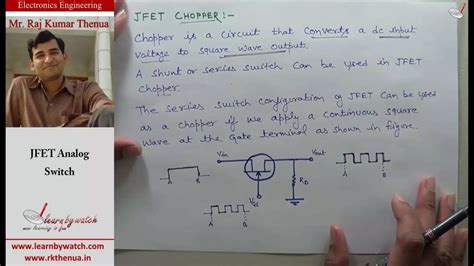 Electronics Engineering
Mr. Raj Kumar Thenua
JFET Analog
Switch
learnbywatch
www.learnbywatch.com
www.rkthenua.in
JFET CHOPPER:-
Chopper is a circuit that converts a dc input
voltage to square wave output.
A shunt or series switch can be used in JFET
chopper.
The series switch configuration of JFET can be used
as a chopper if we apply a continuous square
wave at the Gate terminal as shown in figure.
Vin
Vout
A B
RD
A B
VGS
A B